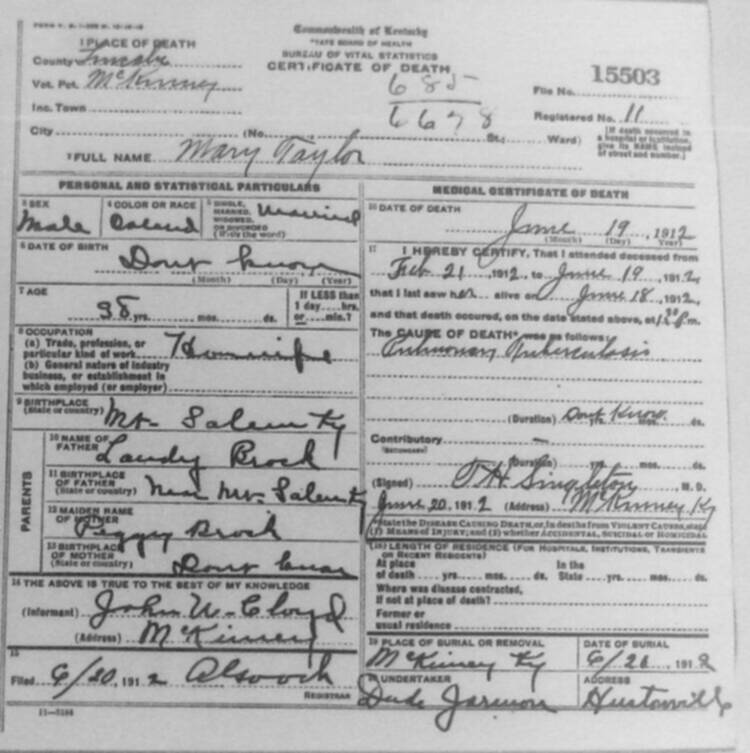 Commonwealth of Kentucky
STATE BOARD OF HEALTH
BUREAU OF VITAL STATISTICS
CERTIFICATE OF DEATH
1 PLACE OF DEATH
County
Vot. Pct. McKinney
Inc. Town
City (No. St.; Ward)
685
6678
File No. 15503
Registered No. 11
[If death occurred in a hospital or institution, give its NAME instead of street and number.]
2 FULL NAME Mary Taylor
PERSONAL AND STATISTICAL PARTICULARS
3 SEX Male
4 COLOR OR RACE Colored
5 SINGLE, MARRIED, WIDOWED, OR DIVORCED (Write the word) Married
6 DATE OF BIRTH Dont know
(Month) (Day) (Year)
7 AGE 38 yrs. mos. ds.
If LESS than 1 day... hrs. or... min.?
8 OCCUPATION
(a) Trade, profession, or particular kind of work Housewife
(b) General nature of industry business, or establishment in which employed (or employer)
9 BIRTHPLACE (State or country) Mt. Salem Ky
PARENTS
10 NAME OF FATHER Landy Brock
11 BIRTHPLACE OF FATHER (State or country) Near Mt. Salem Ky
12 MAIDEN NAME OF MOTHER Peggy Brock
13 BIRTHPLACE OF MOTHER (State or country) Dont know
14 THE ABOVE IS TRUE TO THE BEST OF MY KNOWLEDGE
(Informant) John W. Cloyd
(Address) McKinney
15
Filed 6/20, 1912
REGISTRAR
11-3184
MEDICAL CERTIFICATE OF DEATH
16 DATE OF DEATH June 19 1912
(Month) (Day) Year)
17 I HEREBY CERTIFY, That I attended deceased from
Feb 21, 1912, to June 19, 1912,
that I last saw her alive on June 18, 1912,
and that death occured, on the date stated above, at m.
The CAUSE OF DEATH* was as follows:
Pulmonary Tuberculosis
(Duration) Dont Know yrs. mos. ds.
Contributory —
(SECONDARY)
(Duration) yrs. mos. ds.
(Signed) J H Singleton M. D.
June 20, 1912 (Address) McKinney Ky
*State the DISEASE CAUSING DEATH, or, in deaths from VIOLENT CAUSES, state
(1) MEANS OF INJURY; and (2) whether ACCIDENTAL, SUICIDAL OR HOMICIDAL
(18) LENGTH OF RESIDENCE (FOR HOSPITALS, INSTITUTIONS, TRANSIENTS OR RECENT RESIDENTS)
At place of death yrs. mos. ds. In the State yrs. mos. ds.
Where was disease contracted, if not at place of death?
Former or usual residence
19 PLACE OF BURIAL OR REMOVAL McKinney Ky
DATE OF BURIAL 6/20 1912
20 UNDERTAKER Dude Jarmon
ADDRESS Hustonville